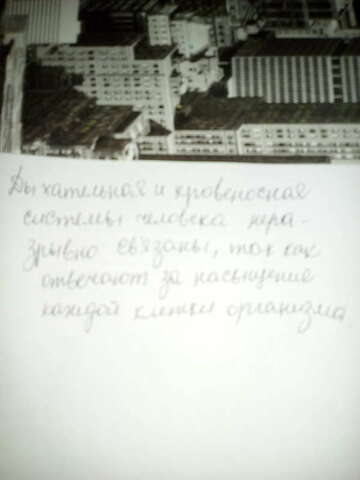 Дыхательная и кровеносная
системы человека нера-
зрывно связаны, так как
отвечают за насыщение
каждой клетки организма.